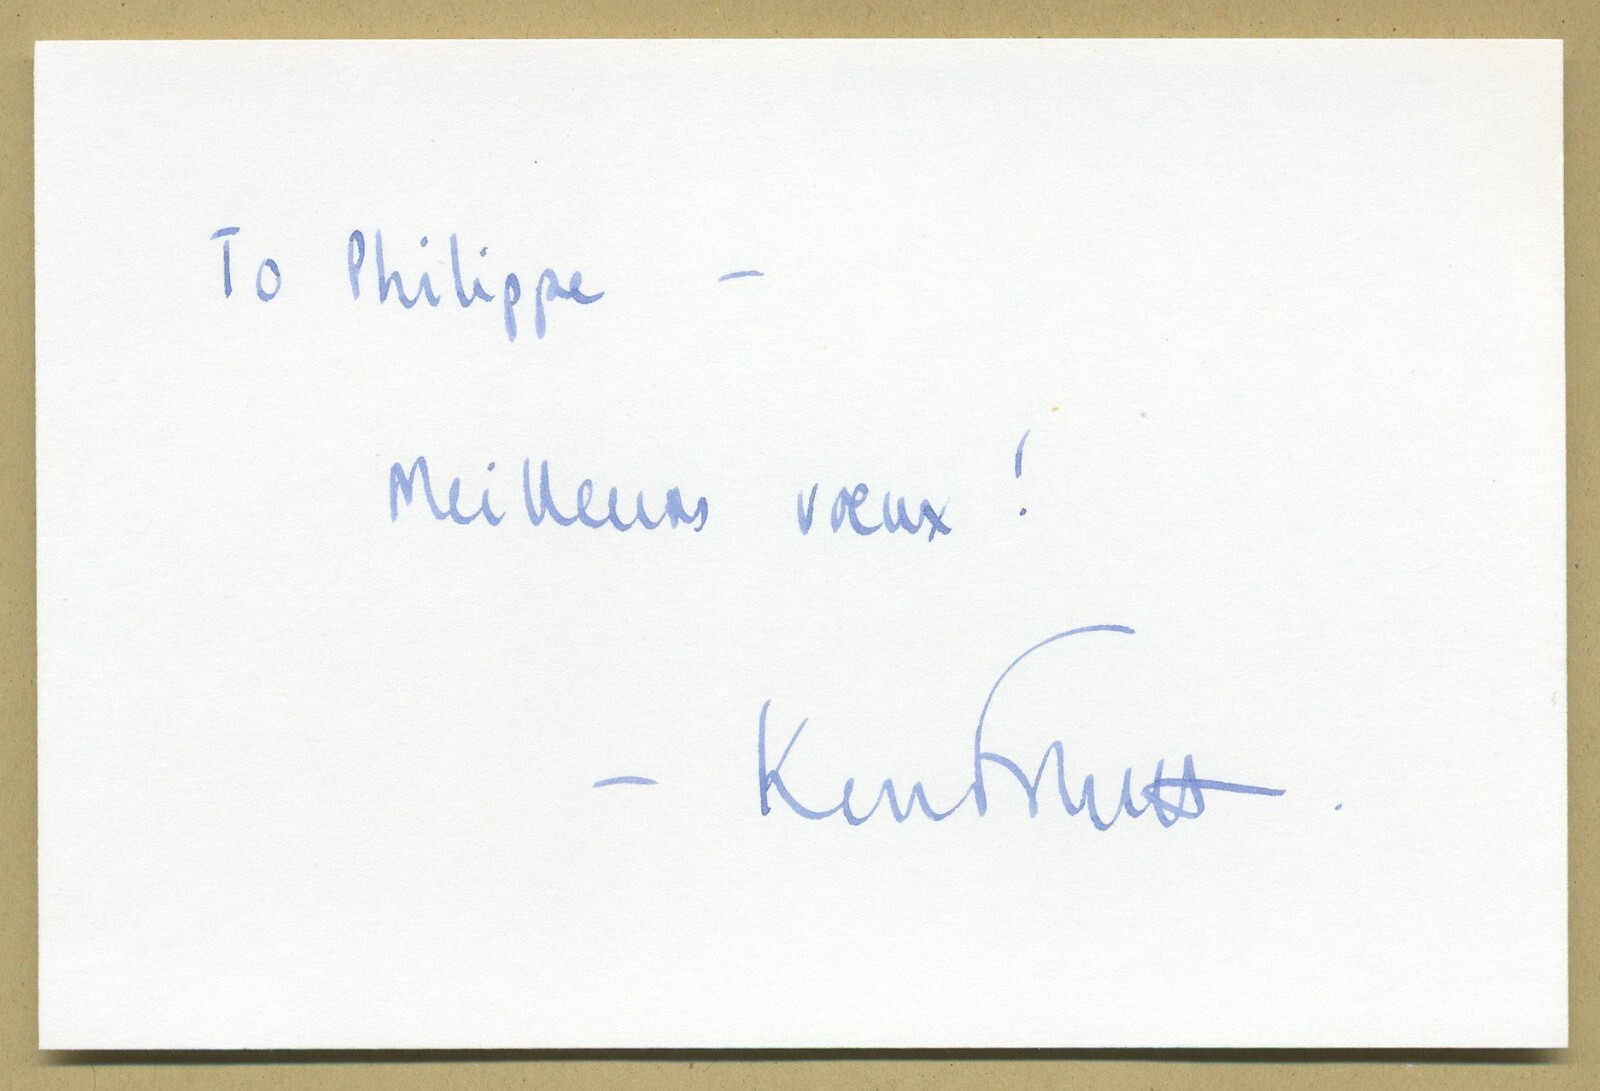 To Philippe –
Meilleurs vœux !
– Ken Follett.